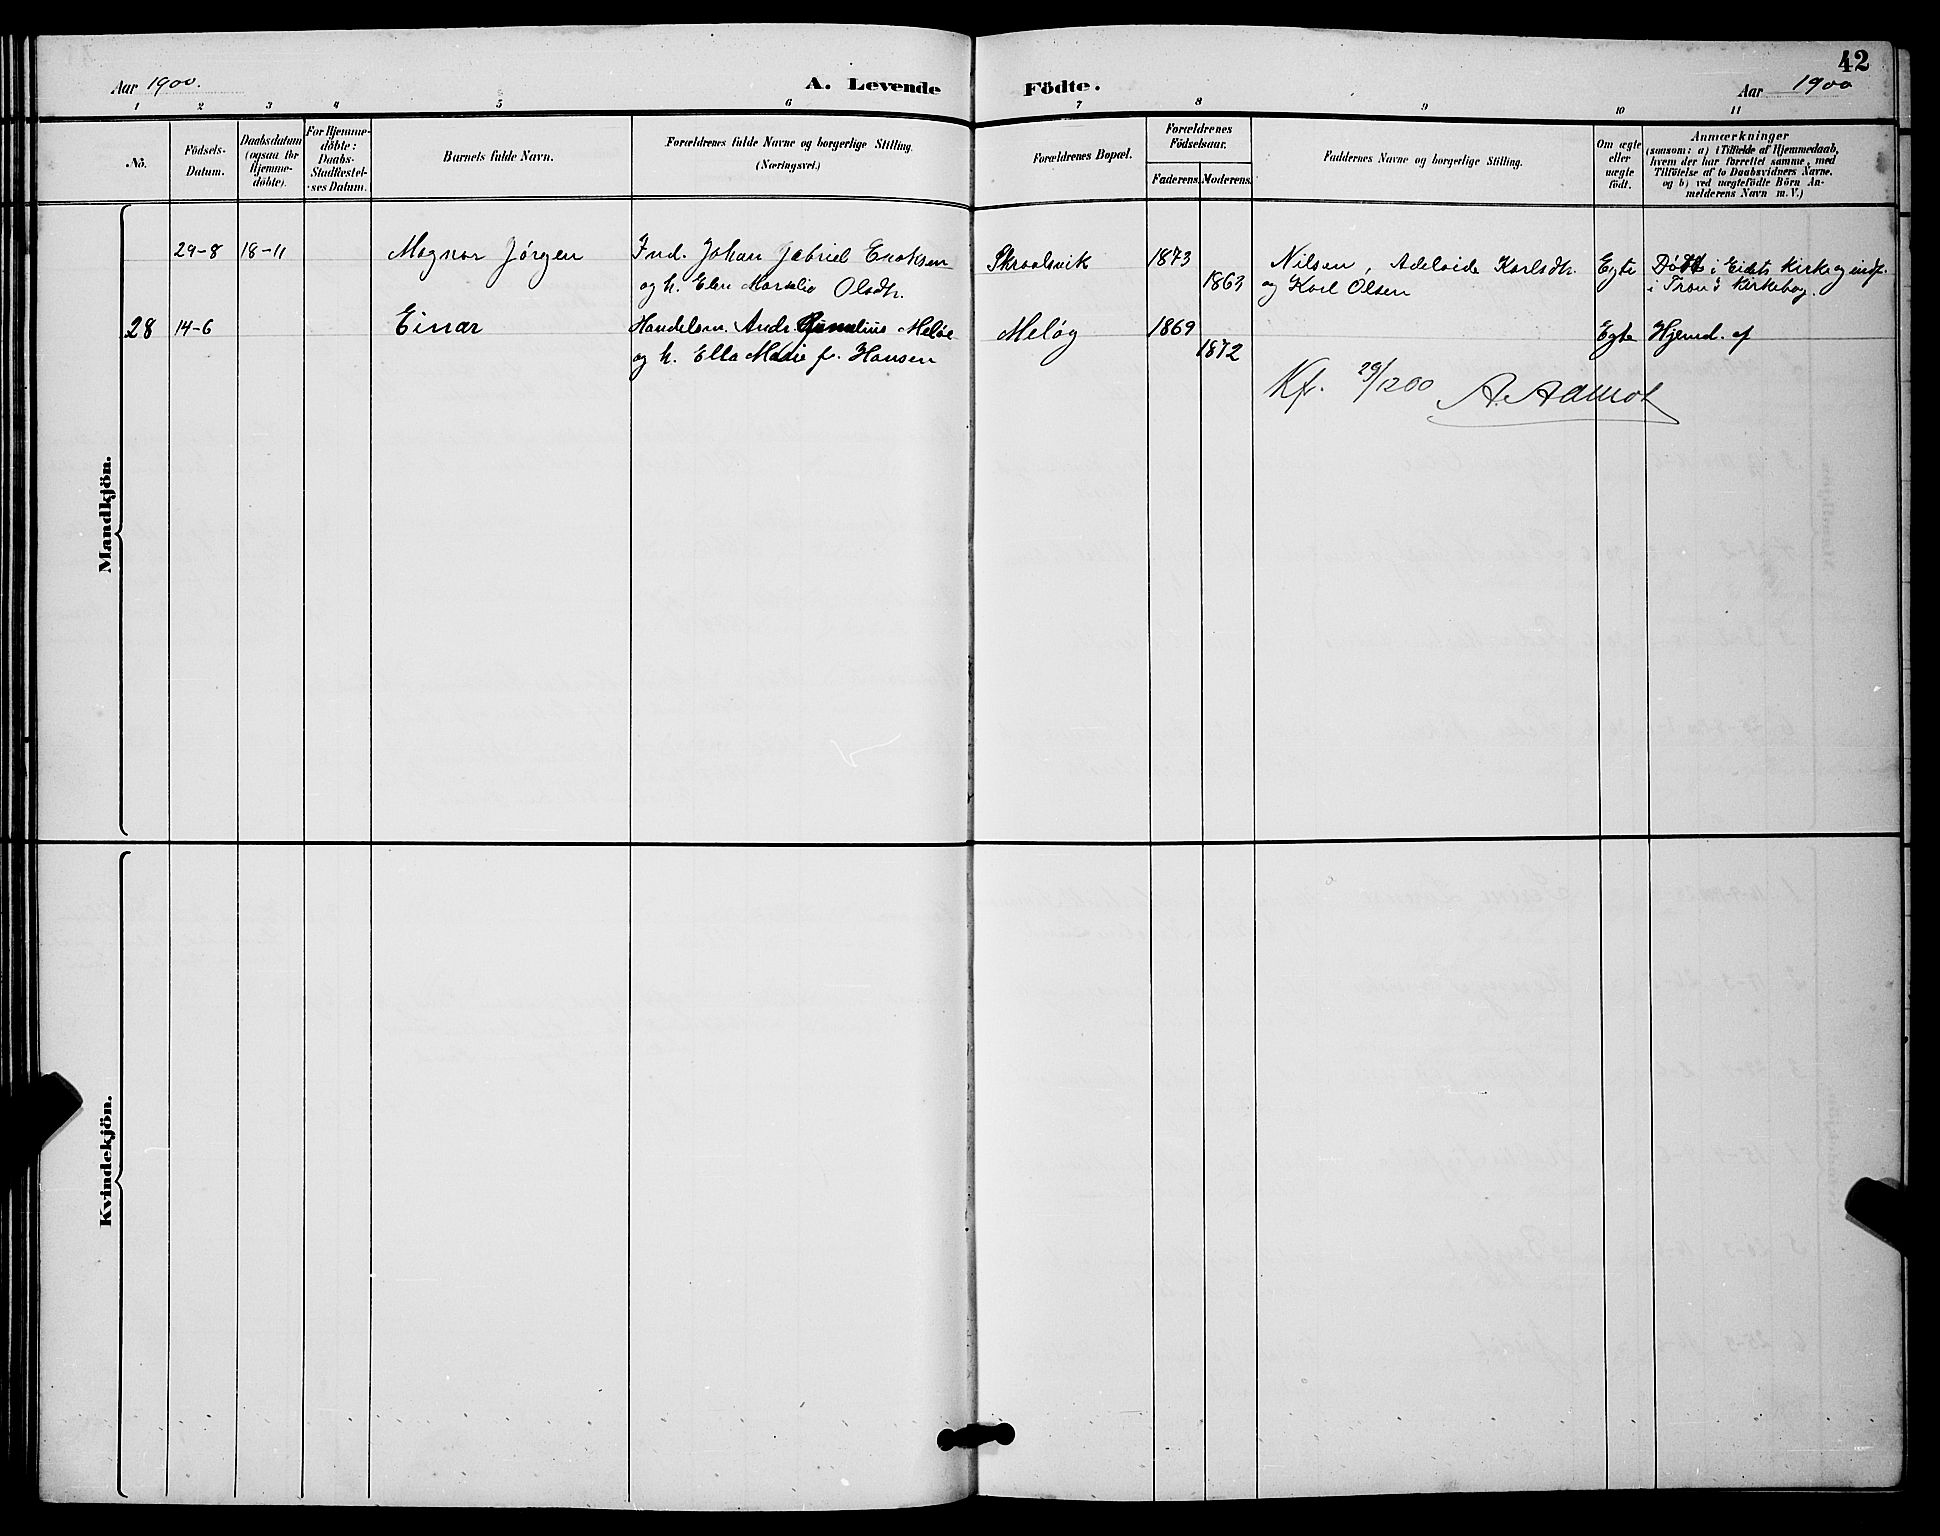 42
Aar 1900.
A. Levende Födte.
Aar 1900
1 2 3 4 5 6 7 8 9 10 11
No.
Födsels-
Datum.
Daabsdatum
(ogsaa for
Hjemme-
döbte).
For Hjemme-
döbte:
Daabs-
Stadfæstel-
ses Datum.
Barnets fulde Navn.
Forældrenes fulde Navne og borgerlige Stilling.
(Næringsvei.)
Forældrenes Bopæl.
Forældrenes
Födselsaar.
Faderens. Moderens.
Faddernes Navne og borgerlige Stilling.
Om ægte
eller
uægte
födt.
Anmærkninger
(saasom: a) i Tilfælde af Hjemmedaab,
hvem der har forrettet samme, med
Tilföielse af to Daabsvidners Navne,
og b) ved uægtefödte Börn An-
melderens Navn m. V.)
Mandkjön.
29-8 18-11 Magnor Jørgen Ind. Johan Gabriel Enoksen Skraalsvik 1873 Nilsen, Adelaide Karlsdtr. Egte i Eidets Kirke og indf.
og h. Elen Olsdtr. 1863 og Karl Olsen i Kirkebog.
28 14-6 Einar Handelsm. Andr. Meløe Meløy 1869 Egte Hjemd. af
og h. Ella Marie f. Hansen 1872
Kf. 29/12 00 A. Aamot
Kvindekjön.